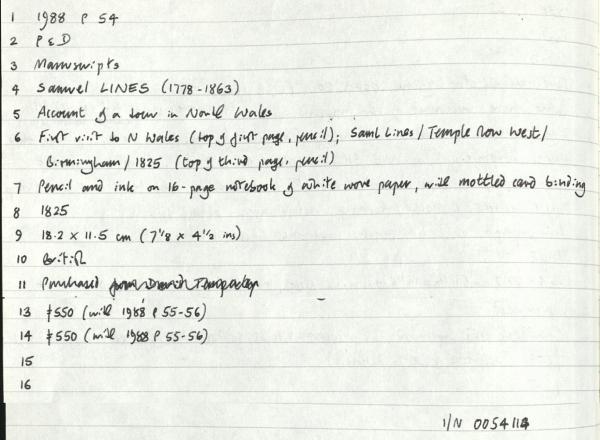 1 1988 P 54
2 P & D
3 Manuscripts
4 Samuel LINES (1778-1863)
5 Account of a tour in North Wales
6 First visit to N Wales (top of first page, pencil); Saml Lines / Temple Row West /
Birmingham / 1825 (top of third page, pencil)
7 Pencil and ink on 16-page notebook of white wove paper, with mottled card binding
8 1825
9 18.2 x 11.5 cm (7 1/8 x 4 1/2 ins)
10 British
11 Purchased from
13 £550 (with 1988 P 55-56)
14 £550 (with 1988 P 55-56)
15
16
I/N 0054114